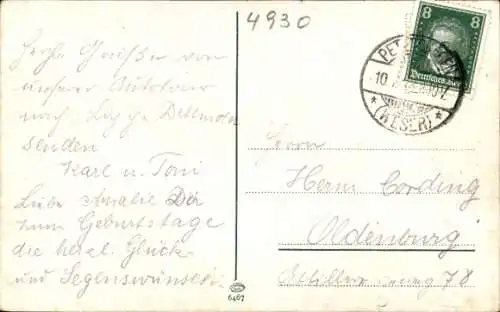 4930
Herzl. Grüße von
unserer Autotour
nach Detmold
senden
Karl u. Toni
Liebe Amalie Dir
zum Geburtstage
die herzl. Glück-
und Segenswünsche
8
Deutsches Reich
PETZ
10.
(WESER)
Herrn
Herm. Cording
Oldenburg
78
6467